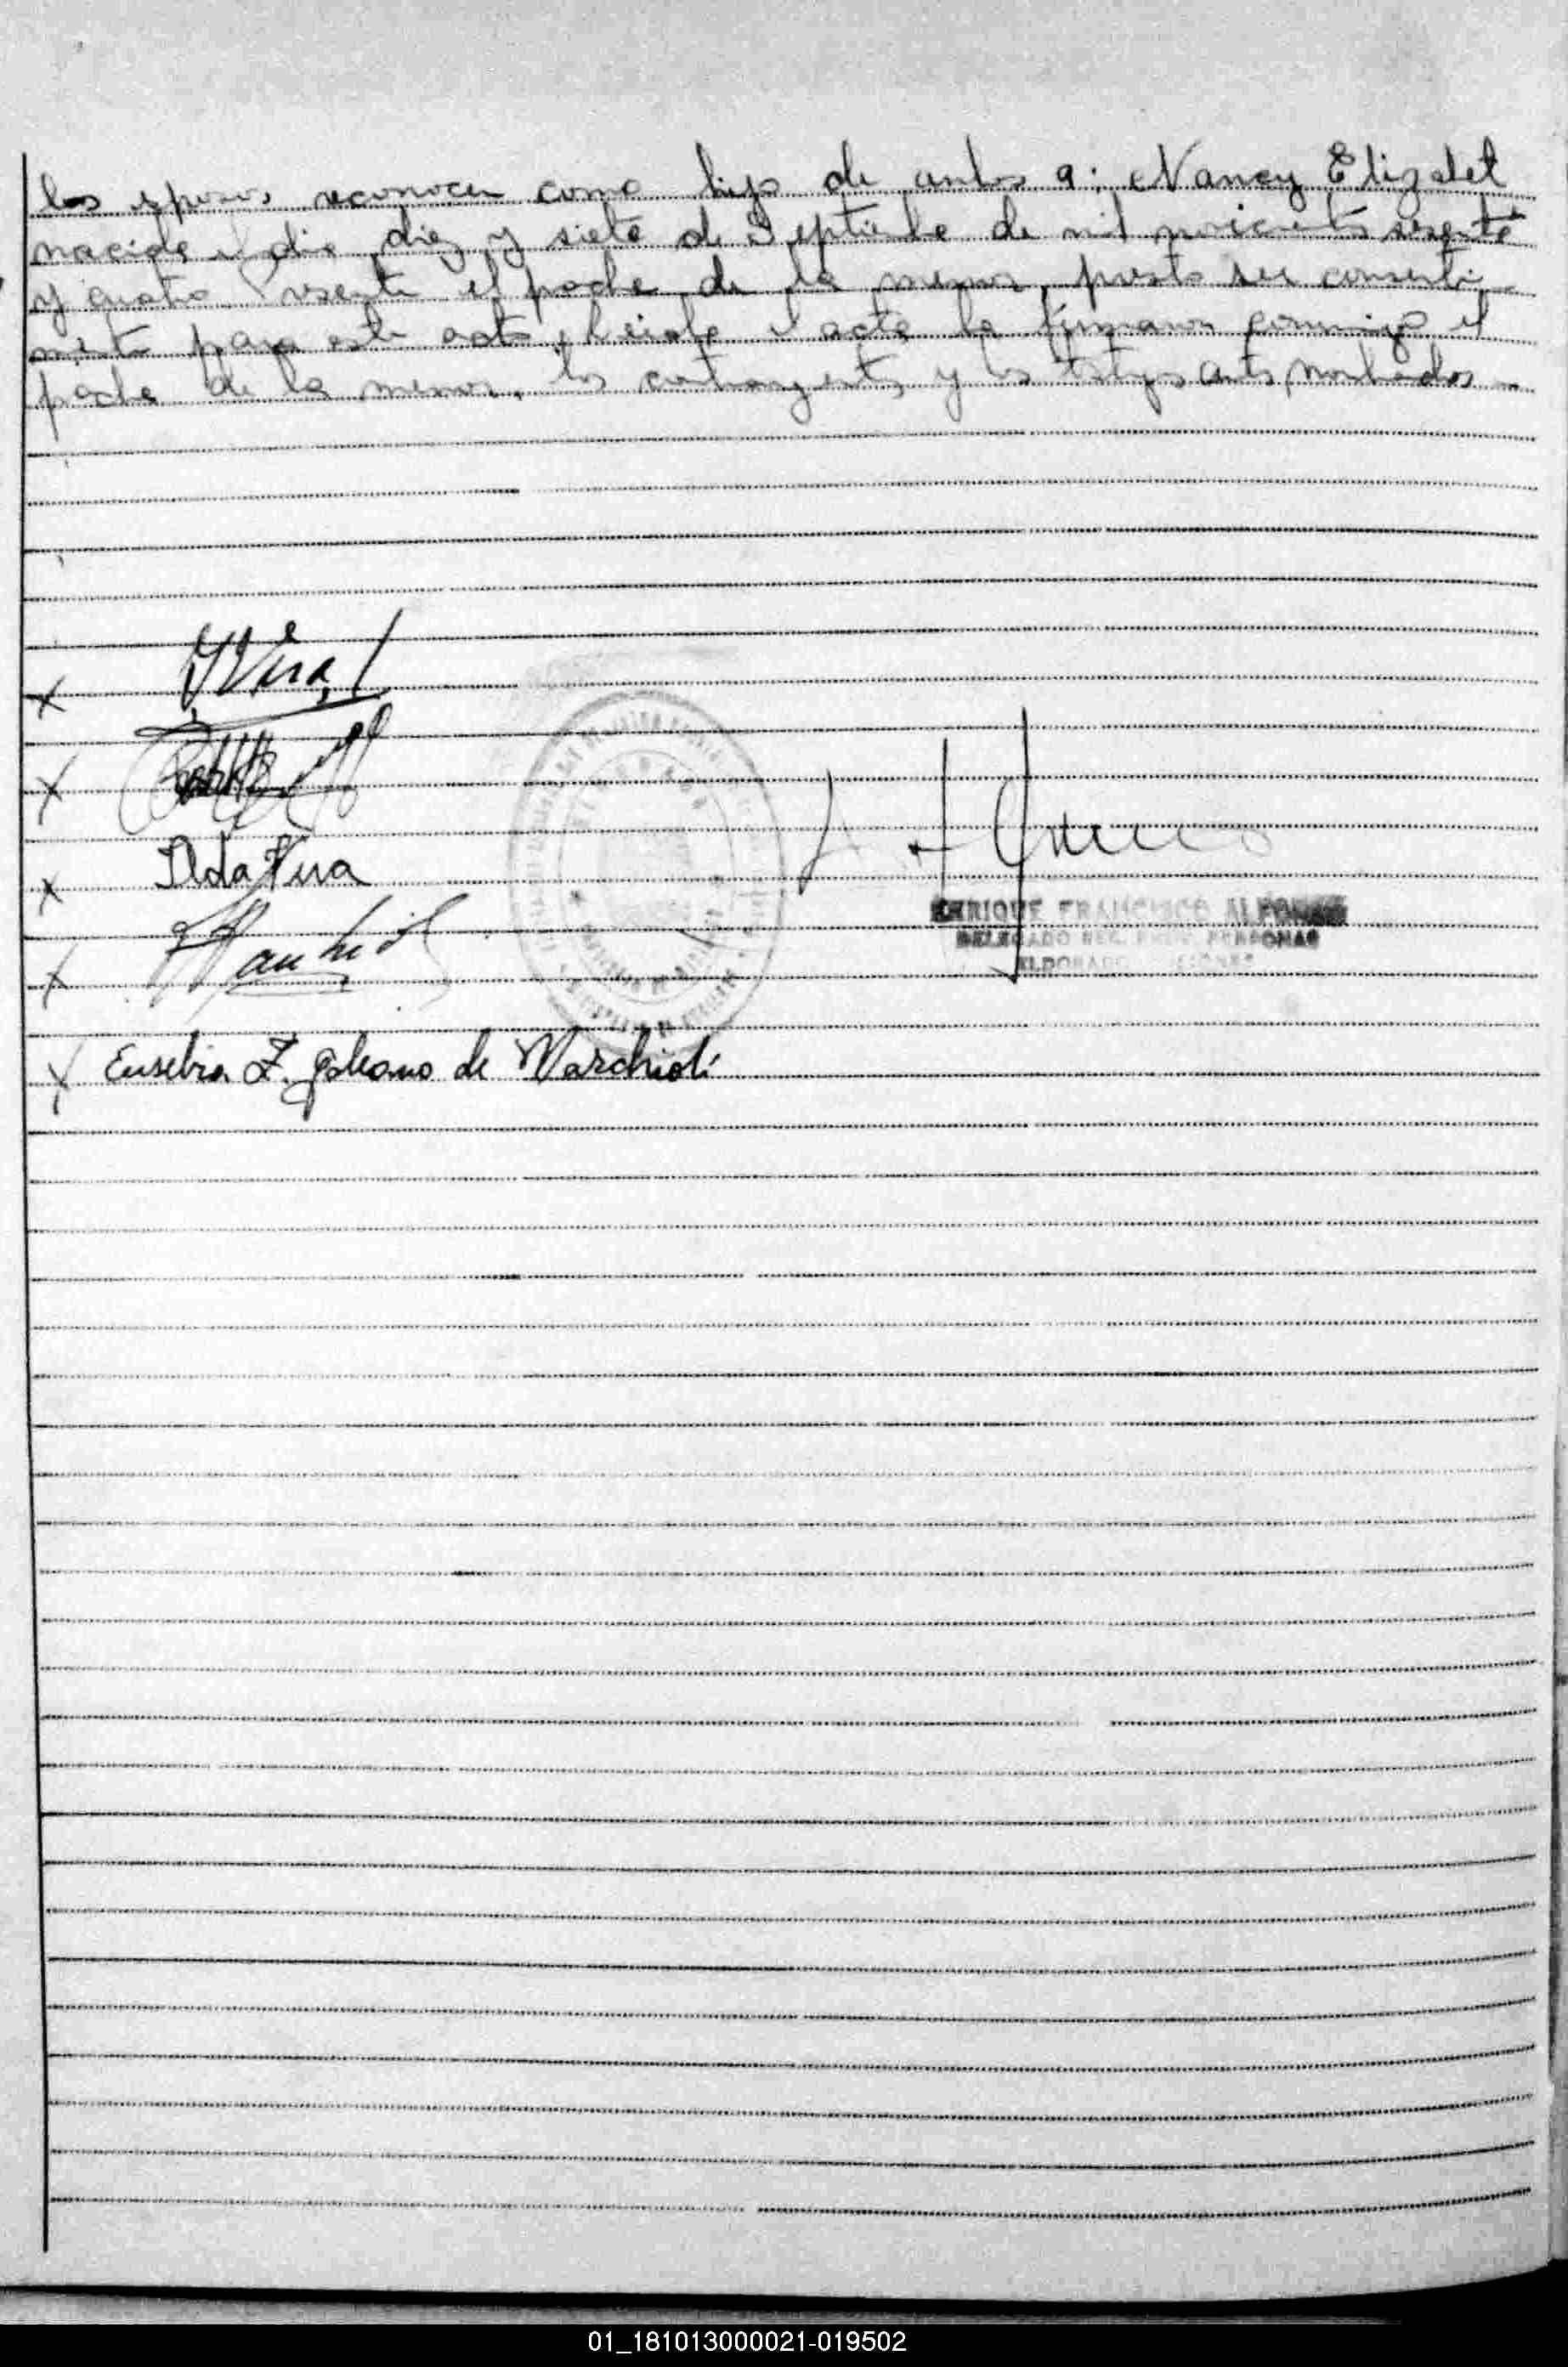 los esposos reconocen como hijo de ambos a: Nancy Elizabet
nacida el dia diez y siete de Septiembre de mil novecientos sesenta
y cuatro Presente el padre de la menor, presta su consenti-
miento para este acto, leida el acta la firmaron conmigo el
padre de la menor, los contrayentes y los testigos antes nombrados
X Vera
X
X Ilda Vera
X
X Eusebia Z. galeano de Marchioli
ENRIQUE FRANCISCO
DELEGADO REG. PROV. PERSONAS
ELDORADO MISIONES
01_181013000021-019502